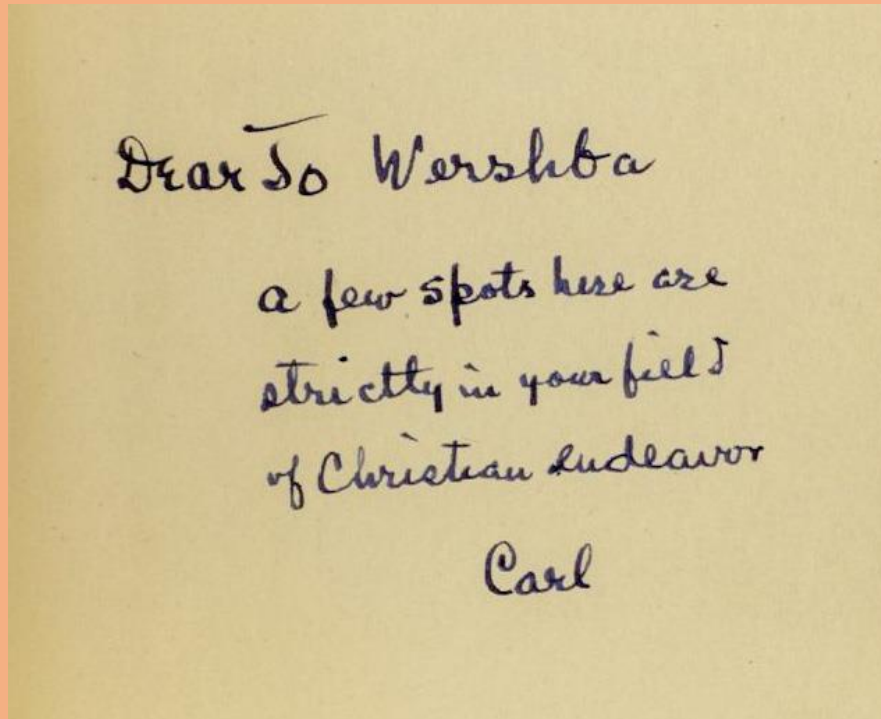 Dear Jo Wershba
a few spots here are
strictly in your field
of Christian endeavor
Carl